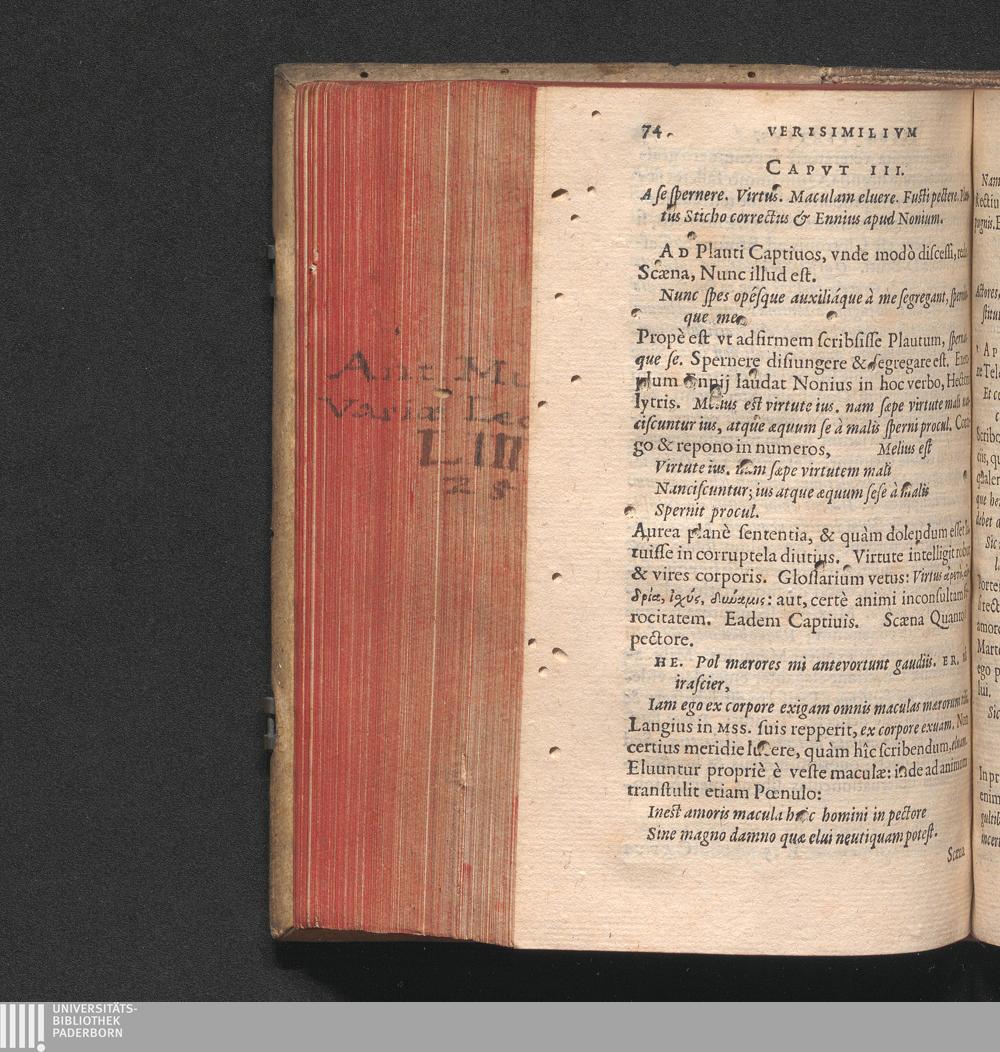 74.
VERISIMILIVM
CAPVT III.
A ſe ſpernere. Virtus. Maculam eluere. Fuſti pectere.
tus Sticho correctus & Ennius apud Nonium.
AD Plauti Captiuos, vnde modò diſceſſi,
Scæna, Nunc illud eſt.
Nunc ſpes opéſque auxiliáque à me ſegregant,
que me.
Propè eſt vt adfirmem ſcribſiſſe Plautum,
que ſe. Spernere diſiungere & ſegregare eſt.
plum Ennij laudat Nonius in hoc verbo,
lytris. Melius eſt virtute ius. nam ſæpe virtute mali
ciſcuntur ius, atque æquum ſe à malis ſperni procul.
go & repono in numeros, Melius eſt
Virtute ius. nam ſæpe virtutem mali
Nanciſcuntur; ius atque æquum ſeſe à malis
Spernit procul.
Aurea planè ſententia, & quàm dolendum eſſet
tuiſſe in corruptela diutius. Virtute intelligit robur
& vires corporis. Gloſſarium vetus: Virtus
δρία, ἰχύς, δύναμις: aut, certè animi inconſultam
rocitatem. Eadem Captiuis. Scæna Quanto
pectore.
HE. Pol mærores mi antevortunt gaudiis. ER.
iraſcier,
Iam ego ex corpore exigam omnis maculas mærorum
Langius in Mss. ſuis repperit, ex corpore exuam.
certius meridie lucere, quàm hîc ſcribendum, eluam.
Eluuntur propriè è veſte maculæ: inde ad animum
tranſtulit etiam Pœnulo:
Ineſt amoris macula hæc homini in pectore
Sine magno damno quæ elui neutiquam poteſt.
Scæna
Ant Mu
Variæ Lec
LIII
28
Nam
Rectiu
Actores,
ſtitui
AP
Et co
Scribo
ciis, qu
que he
debet a
Sic
amore
Marte
ego p
lui.
Sic
In pr
enim
UNIVERSITÄTS-
BIBLIOTHEK
PADERBORN